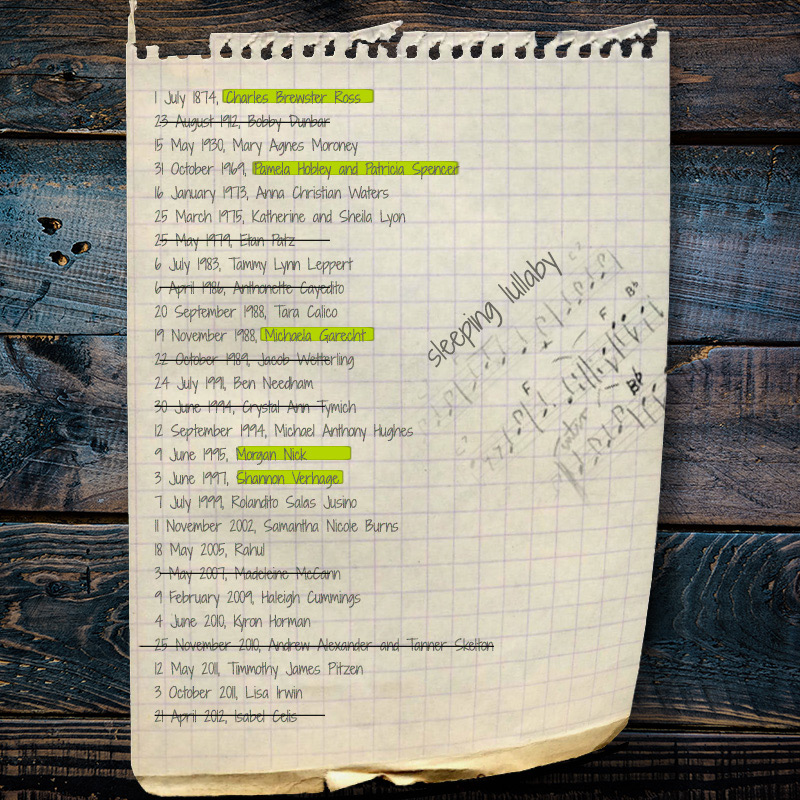 1 July 1874, Charles Brewster Ross
23 August 1912, Bobby Dunbar
15 May 1930, Mary Agnes Moroney
31 October 1969, Pamela Hobley and Patricia Spencer
16 January 1973, Anna Christian Waters
25 March 1975, Katherine and Sheila Lyon
25 May 1979, Etan Patz
6 July 1983, Tammy Lynn Leppert
6 April 1986, Anthonette Cayedito
20 September 1988, Tara Calico
19 November 1988, Michaela Garecht
22 October 1989, Jacob Wetterling
24 July 1991, Ben Needham
30 June 1994, Crystal Ann Tymich
12 September 1994, Michael Anthony Hughes
9 June 1995, Morgan Nick
3 June 1997, Shannon Verhage
7 July 1999, Rolandito Salas Jusino
11 November 2002, Samantha Nicole Burns
18 May 2005, Rahul
3 May 2007, Madeleine McCann
9 February 2009, Haleigh Cummings
4 June 2010, Kyron Horman
25 November 2010, Andrew Alexander and Tanner Skelton
12 May 2011, Timmothy James Pitzen
3 October 2011, Lisa Irwin
21 April 2012, Isabel Celis
sleeping lullaby
F B♭
F B♭